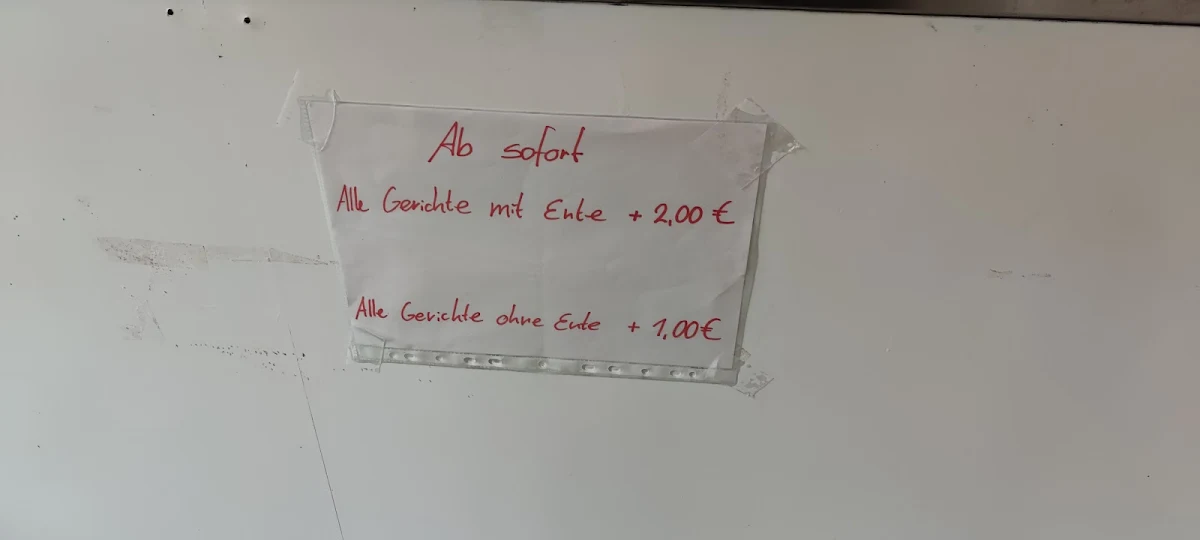 Ab sofort
Alle Gerichte mit Ente + 2,00 €
Alle Gerichte ohne Ente + 1,00 €